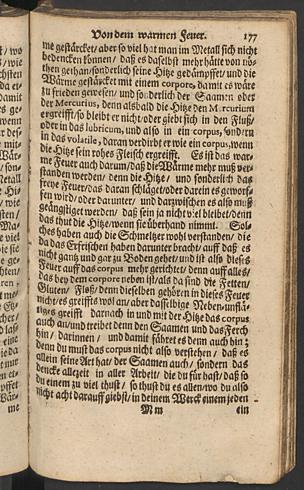 Von dem warmen Feuer. 177
me gestärcket/ aber so viel hat man im Metall sich nicht
bedencken können/ daß es daselbst mehr hätte von nö-
then gethan/sonderlich seine Hitz gedämpffet/und die
Wärme gestärcket mit einem corpore, damit es wäre
zu frieden gewesen/ und sonderlich der Saamen oder
der Mercurius, denn alsbald die Hitze den Mercurium
ergreifft/so bleibt er nicht/oder giebt sich in den Fluß/
oder in das lubricum, und also in ein corpus, sondern
in das volatile, daran verdirbt er wie ein corpus, wenn
die Hitze sein rohes Fleisch ergreifft. Es ist das war-
me Feuer auch darum/daß die Wärme mehr muß ver-
standen werden/ denn die Hitze/ und sonderlich das
freye Feuer/das daran schläget/oder darein es geworf-
fen wird/oder darunter/ und darzwischen es also muß
geängstiget werden/ daß sein ja nicht viel bleibet/denn
das thut die Hitz/wenn sie überhand nimmt. Sol-
ches haben auch die Schmeltzer wohl verstanden/ die
da das Erfrischen haben darunter bracht/ auff daß es
nicht gantz und gar zu Boden gehet/und ist also dieses
Feuer auff das corpus mehr gerichtet/ denn auff alles/
das bey dem corpore neben ist/als da sind die Fetten/
Gluten/ Floß/ denn dieselben gehören in dieses Feuer
nicht/es greifft wol an/ aber dasselbige Neben-
ges greifft darnach in und mit der Hitze das corpus
auch an/und treibet denn den Saamen und das Ferch
hin/ darinnen/ und damit fähret es denn auch hin;
denn du must das corpus nicht also verstehen/ daß es
allein seine Art hat/ der Saamen auch/ sondern das
dencke allezeit in aller Arbeit/ die du für hast/daß so
du einem zu viel thust/ so thust du es allen/wo du also
nicht acht darauff giebst/in deinem Werck einem jeden
M m ein